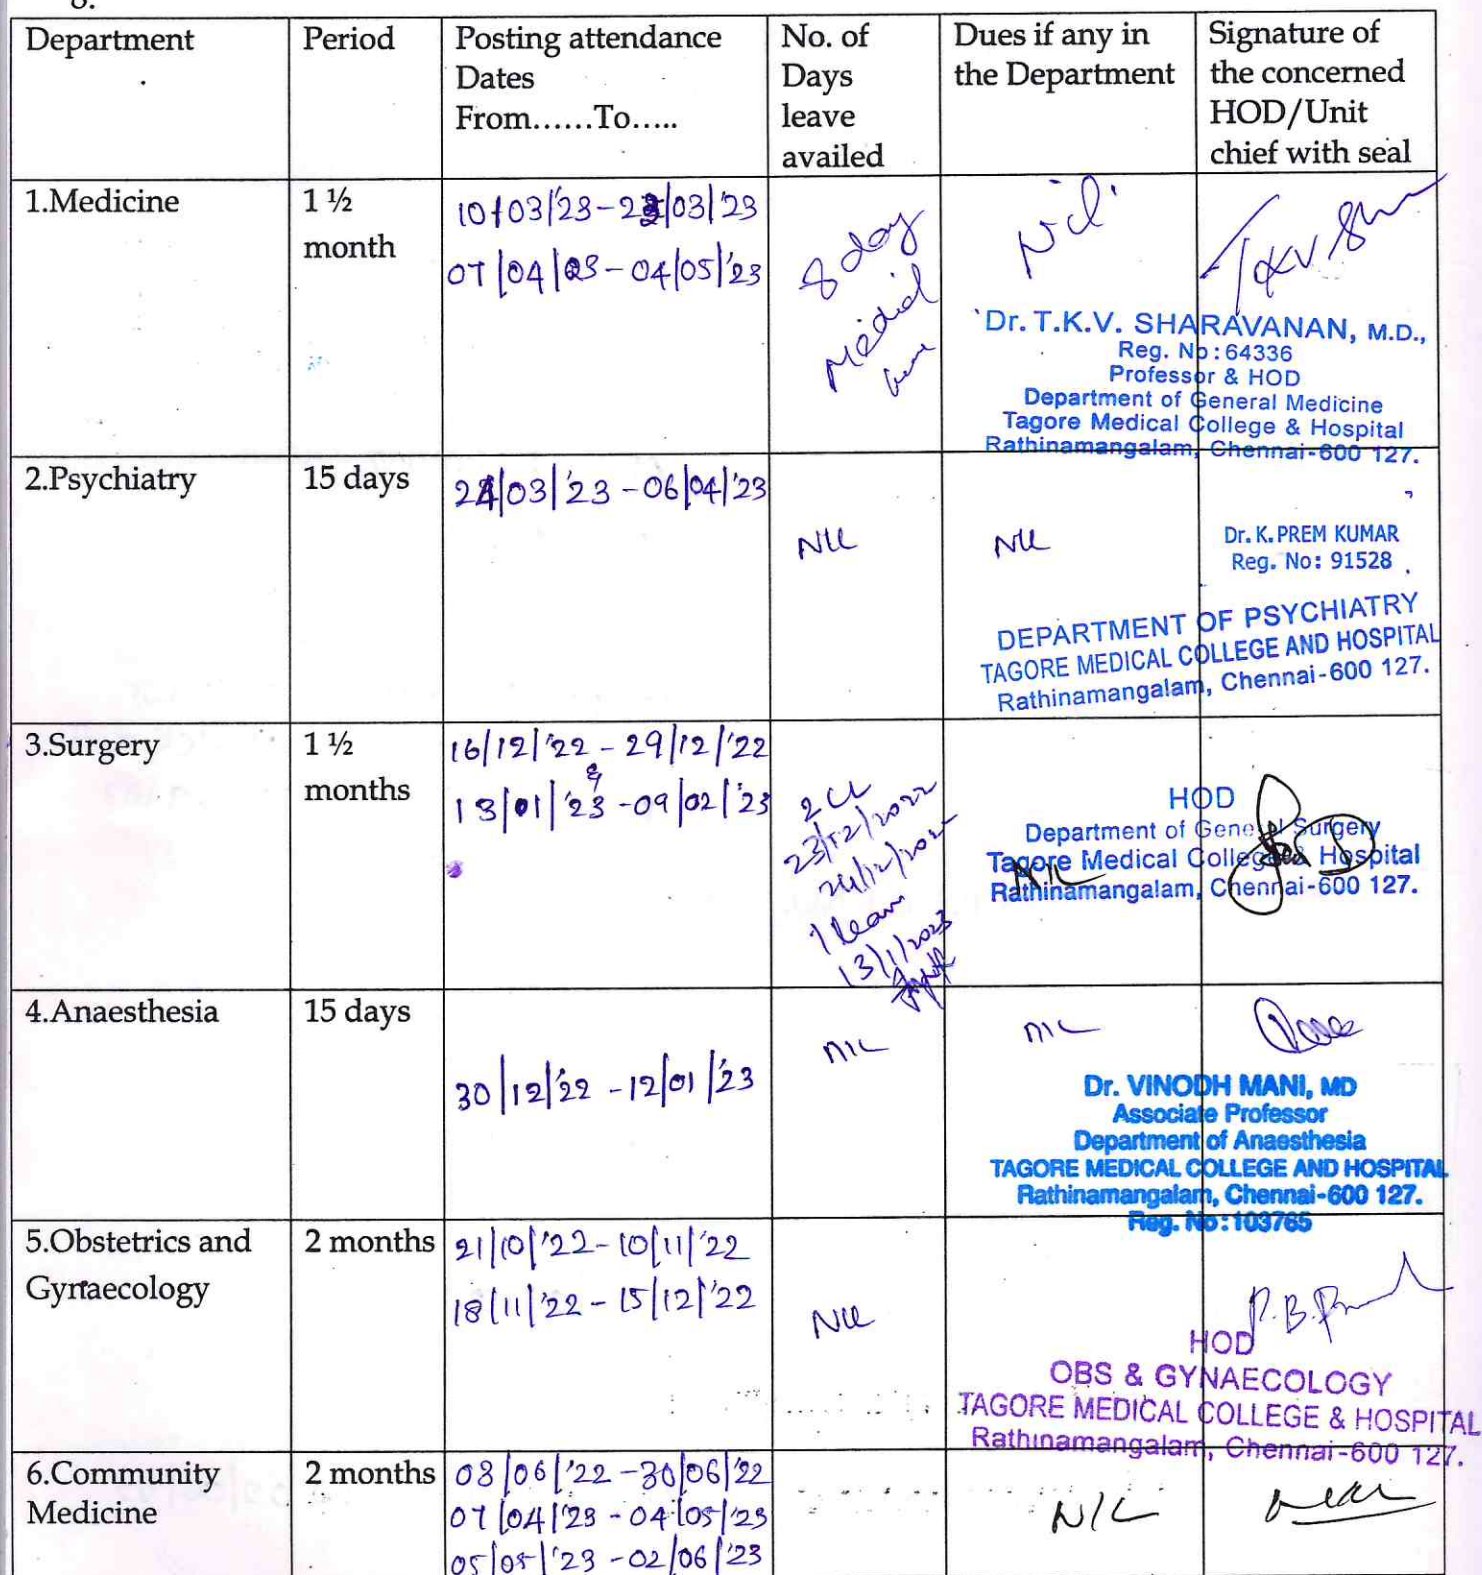 8.
Department
Period
Posting attendance
Dates
From......To.....
No. of
Days
leave
availed
Dues if any in
the Department
Signature of
the concerned
HOD/Unit
chief with seal
1.Medicine
1 ½
month
10/03/'23-23/03/'23
07/04/23-04/05/'23
8 day
Medical
Nil
Dr. T.K.V. SHARAVANAN, M.D.,
Reg. No:64336
Professor & HOD
Department of General Medicine
Tagore Medical College & Hospital
Rathinamangalam, Chennai-600 127.
2.Psychiatry
15 days
24/03/'23-06/04/'23
Nil
Nil
Dr. K.PREM KUMAR
Reg. No: 91528
DEPARTMENT OF PSYCHIATRY
TAGORE MEDICAL COLLEGE AND HOSPITAL
Rathinamangalam, Chennai-600 127.
3.Surgery
1 ½
months
16/12/'22 - 29/12/'22
&
13/01/'23 -09/02/'23
2 CL
23/12/2022
24/12/2022
1 leave
13/1/2023
HOD
Department of General Surgery
Tagore Medical College & Hospital
Rathinamangalam, Chennai-600 127.
NIL
4.Anaesthesia
15 days
30/12/'22 -12/01/'23
NIL
NIL
Dr. VINODH MANI, MD
Associate Professor
Department of Anaesthesia
TAGORE MEDICAL COLLEGE AND HOSPITAL
Rathinamangalam, Chennai-600 127.
Reg. No:103765
5.Obstetrics and
Gynaecology
2 months
21/10/'22-10/11/'22
18/11/'22-15/12/'22
Nil
HOD
OBS & GYNAECOLOGY
TAGORE MEDICAL COLLEGE & HOSPITAL
Rathinamangalam, Chennai-600 127.
6.Community
Medicine
2 months
08/06/'22-30/06/'22
07/04/'23-04/05/'23
05/05/'23-02/06/'23
NIL